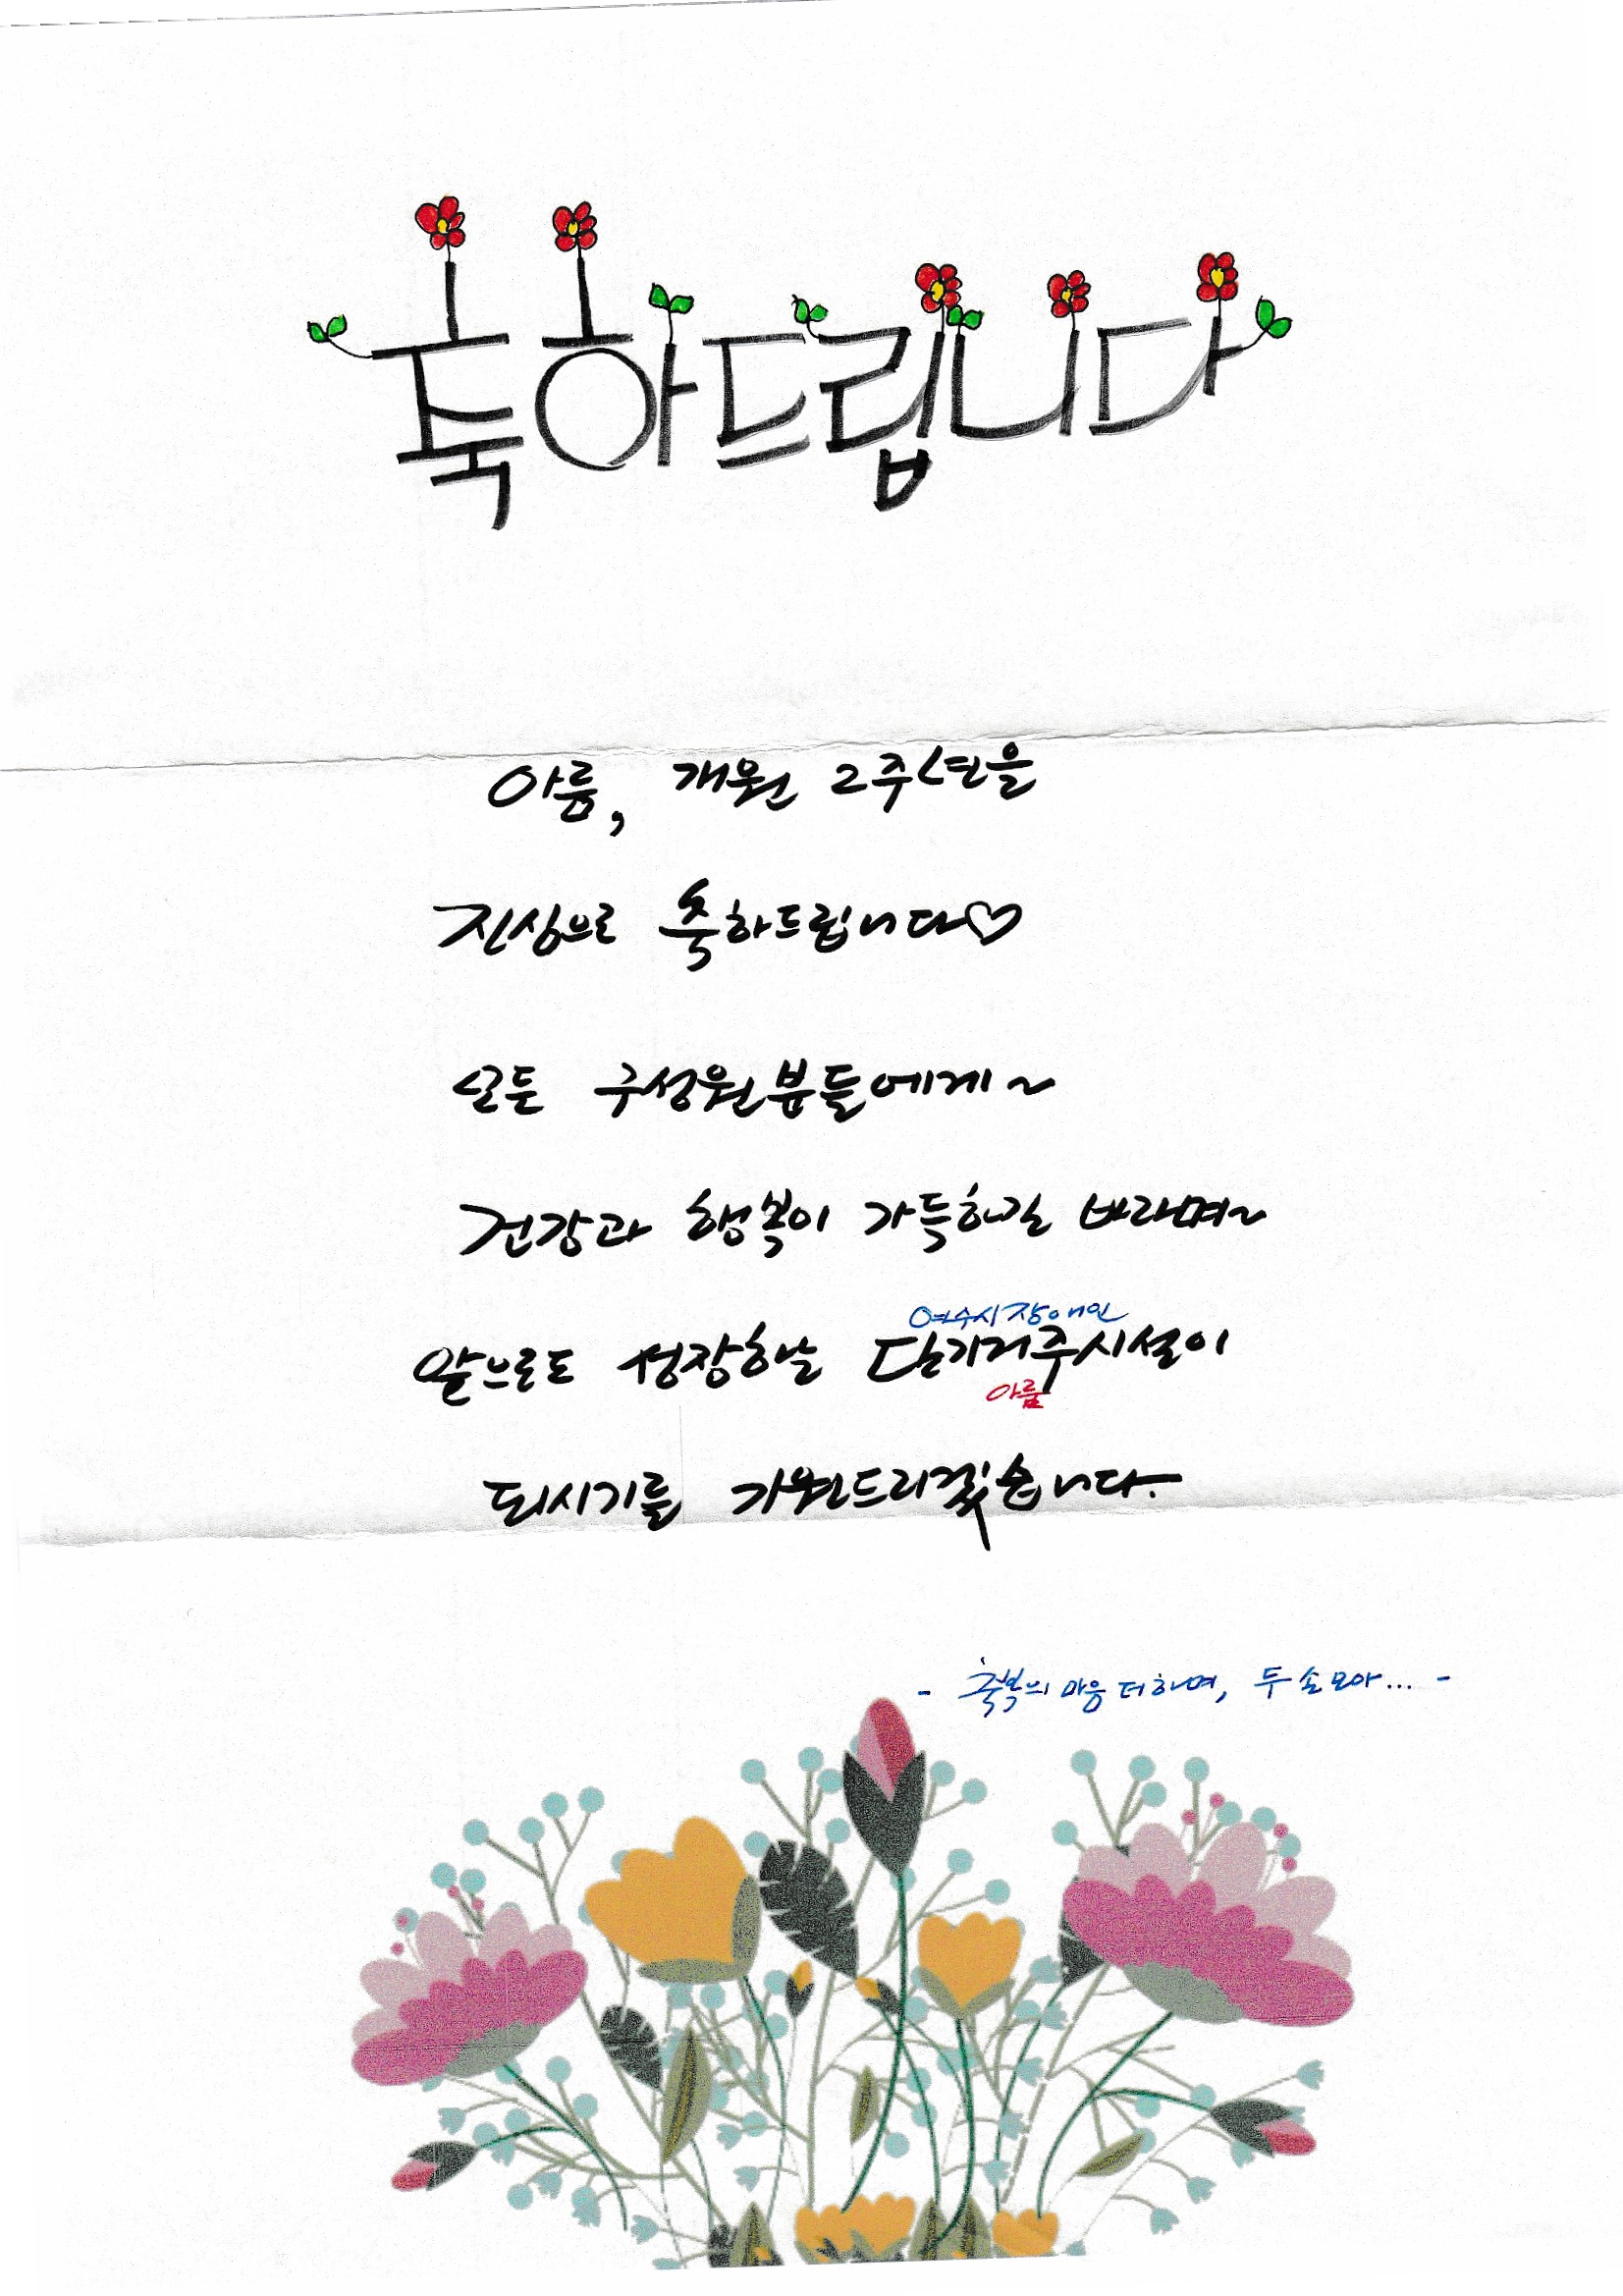 축하드립니다
아름, 개원 2주년을
진심으로 축하드립니다♡
모든 구성원분들에게~
건강과 행복이 가득하길 바라며~
여수시장애인
앞으로도 성장하는 단기거주시설이
아름
되시기를 기원드리겠습니다.
- 축복의 마음 더하며, 두 손 모아... -